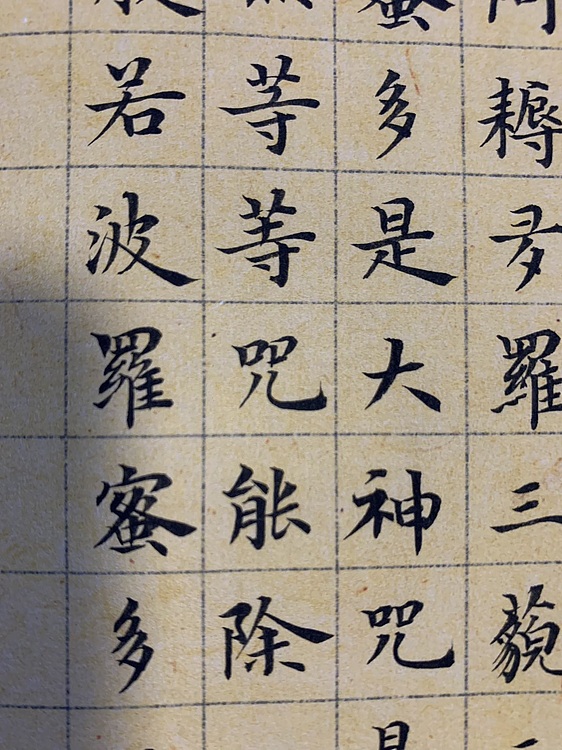 耨多羅三藐
多是大神咒
等等咒能除
若波羅蜜多